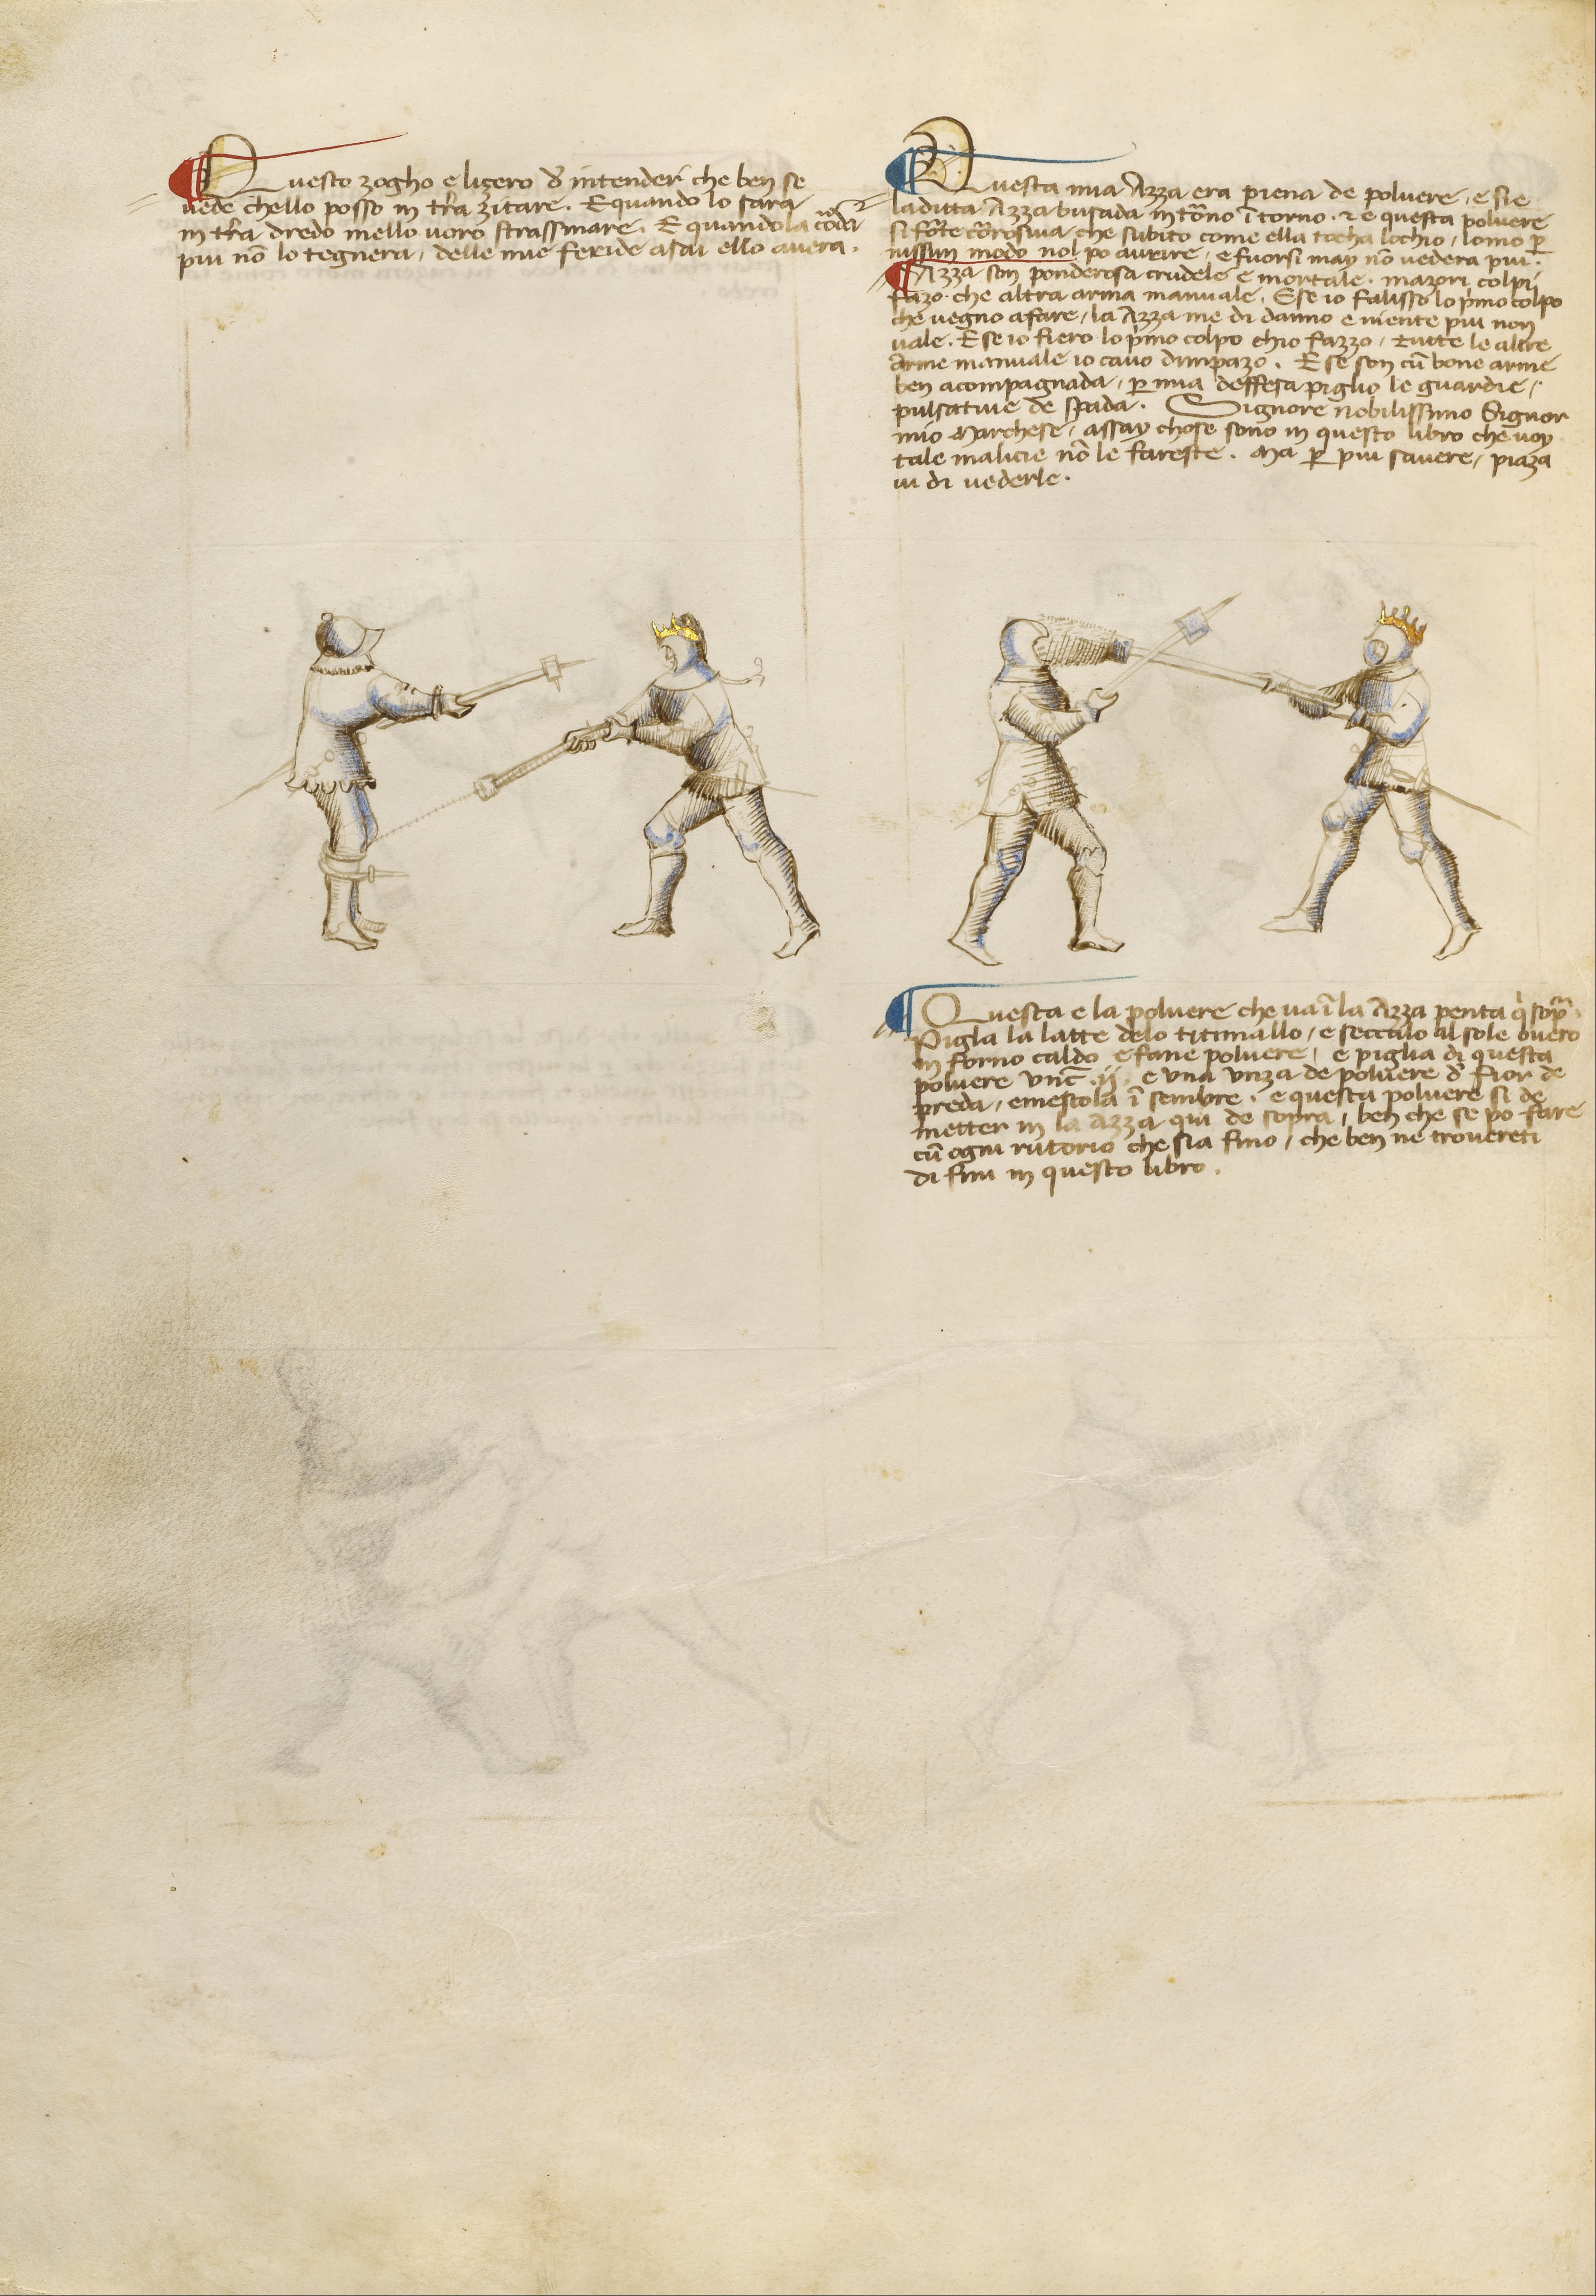 Questo zogho e ligero d'intender che ben se
uede chello posso in tr̃a zitare. E quando lo sara
in tr̃a dredo mello uoro strassinare. E quando la cõda
piu nõ lo tegnera, delle mie feride asai ello auera.
Questa mia Azza era piena de poluere, e si e
la ditta Azza busada in tõrno ĩ torno. ⁊ e questa poluere
si fõrte cõrosiua che subito come ella tocha lochio, lomo ꝑ
nissun modo nol po aurire, e fuorsi may nõ uedera piu.
¶ Azza son ponderosa crudele e mortale. mazori colpi
fazo che altra arma manuale. E se io falisso lo pmo colpo
che uegno a fare, la Azza me di danno e niente piu non
uale. E se io fiero lo pmo colpo chio fazzo, tutte le altre
arme manuale io cauo dimpazo. E se son cũ bone arme
ben acompagnada, ꝑ mia deffesa piglio le guardie,
pulsatiue de spada. Signore nobilissimo Signor
mio Marchese, assay chose sono in questo libro che uoy
tale malicie nõ le fareste. Ma ꝑ piu sauere, piaza
ui di uederle.
¶ Questa e la poluere che ua ĩ la Azza penta q̃ sop̃ᵃ.
Pigla la latte delo titimallo, e seccalo al sole ouero
in forno caldo e fane poluere, e piglia di questa
poluere unc̃ .ij. e una unza de poluere d' fior de
preda, e mescola ĩ sembre. e questa poluere si de
metter in la Azza qui de sopra, ben che se po fare
cũ ogni rutorio che sia fino, che ben ne trouereti
di fini in questo libro.